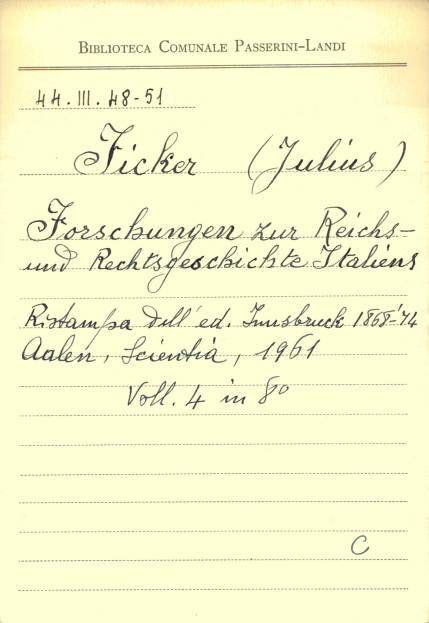 BIBLIOTECA COMUNALE PASSERINI-LANDI
44.III.48-51
Ficker (Julius)
Forschungen zur Reichs-
und Rechtsgeschichte Italiens
Ristampa dell'ed. Innsbruck 1868-'74
Aalen, Scientia, 1961
Voll. 4 in 8°
C